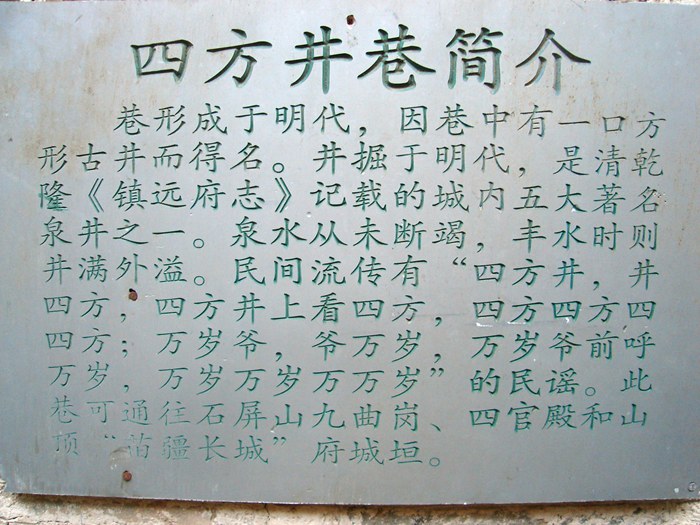 四方井巷简介
巷形成于明代，因巷中有一口方
形古井而得名。井掘于明代，是清乾
隆《镇远府志》记载的城内五大著名
泉井之一。泉水从未断竭，丰水时则
井满外溢。民间流传有“四方井，井
四方，四方井上看四方，四方四方四
四方；万岁爷，爷万岁，万岁爷前呼
万岁，万岁万岁万万岁”的民谣。此
巷可通往石屏山九曲岗、四官殿和山
顶“苗疆长城”府城垣。